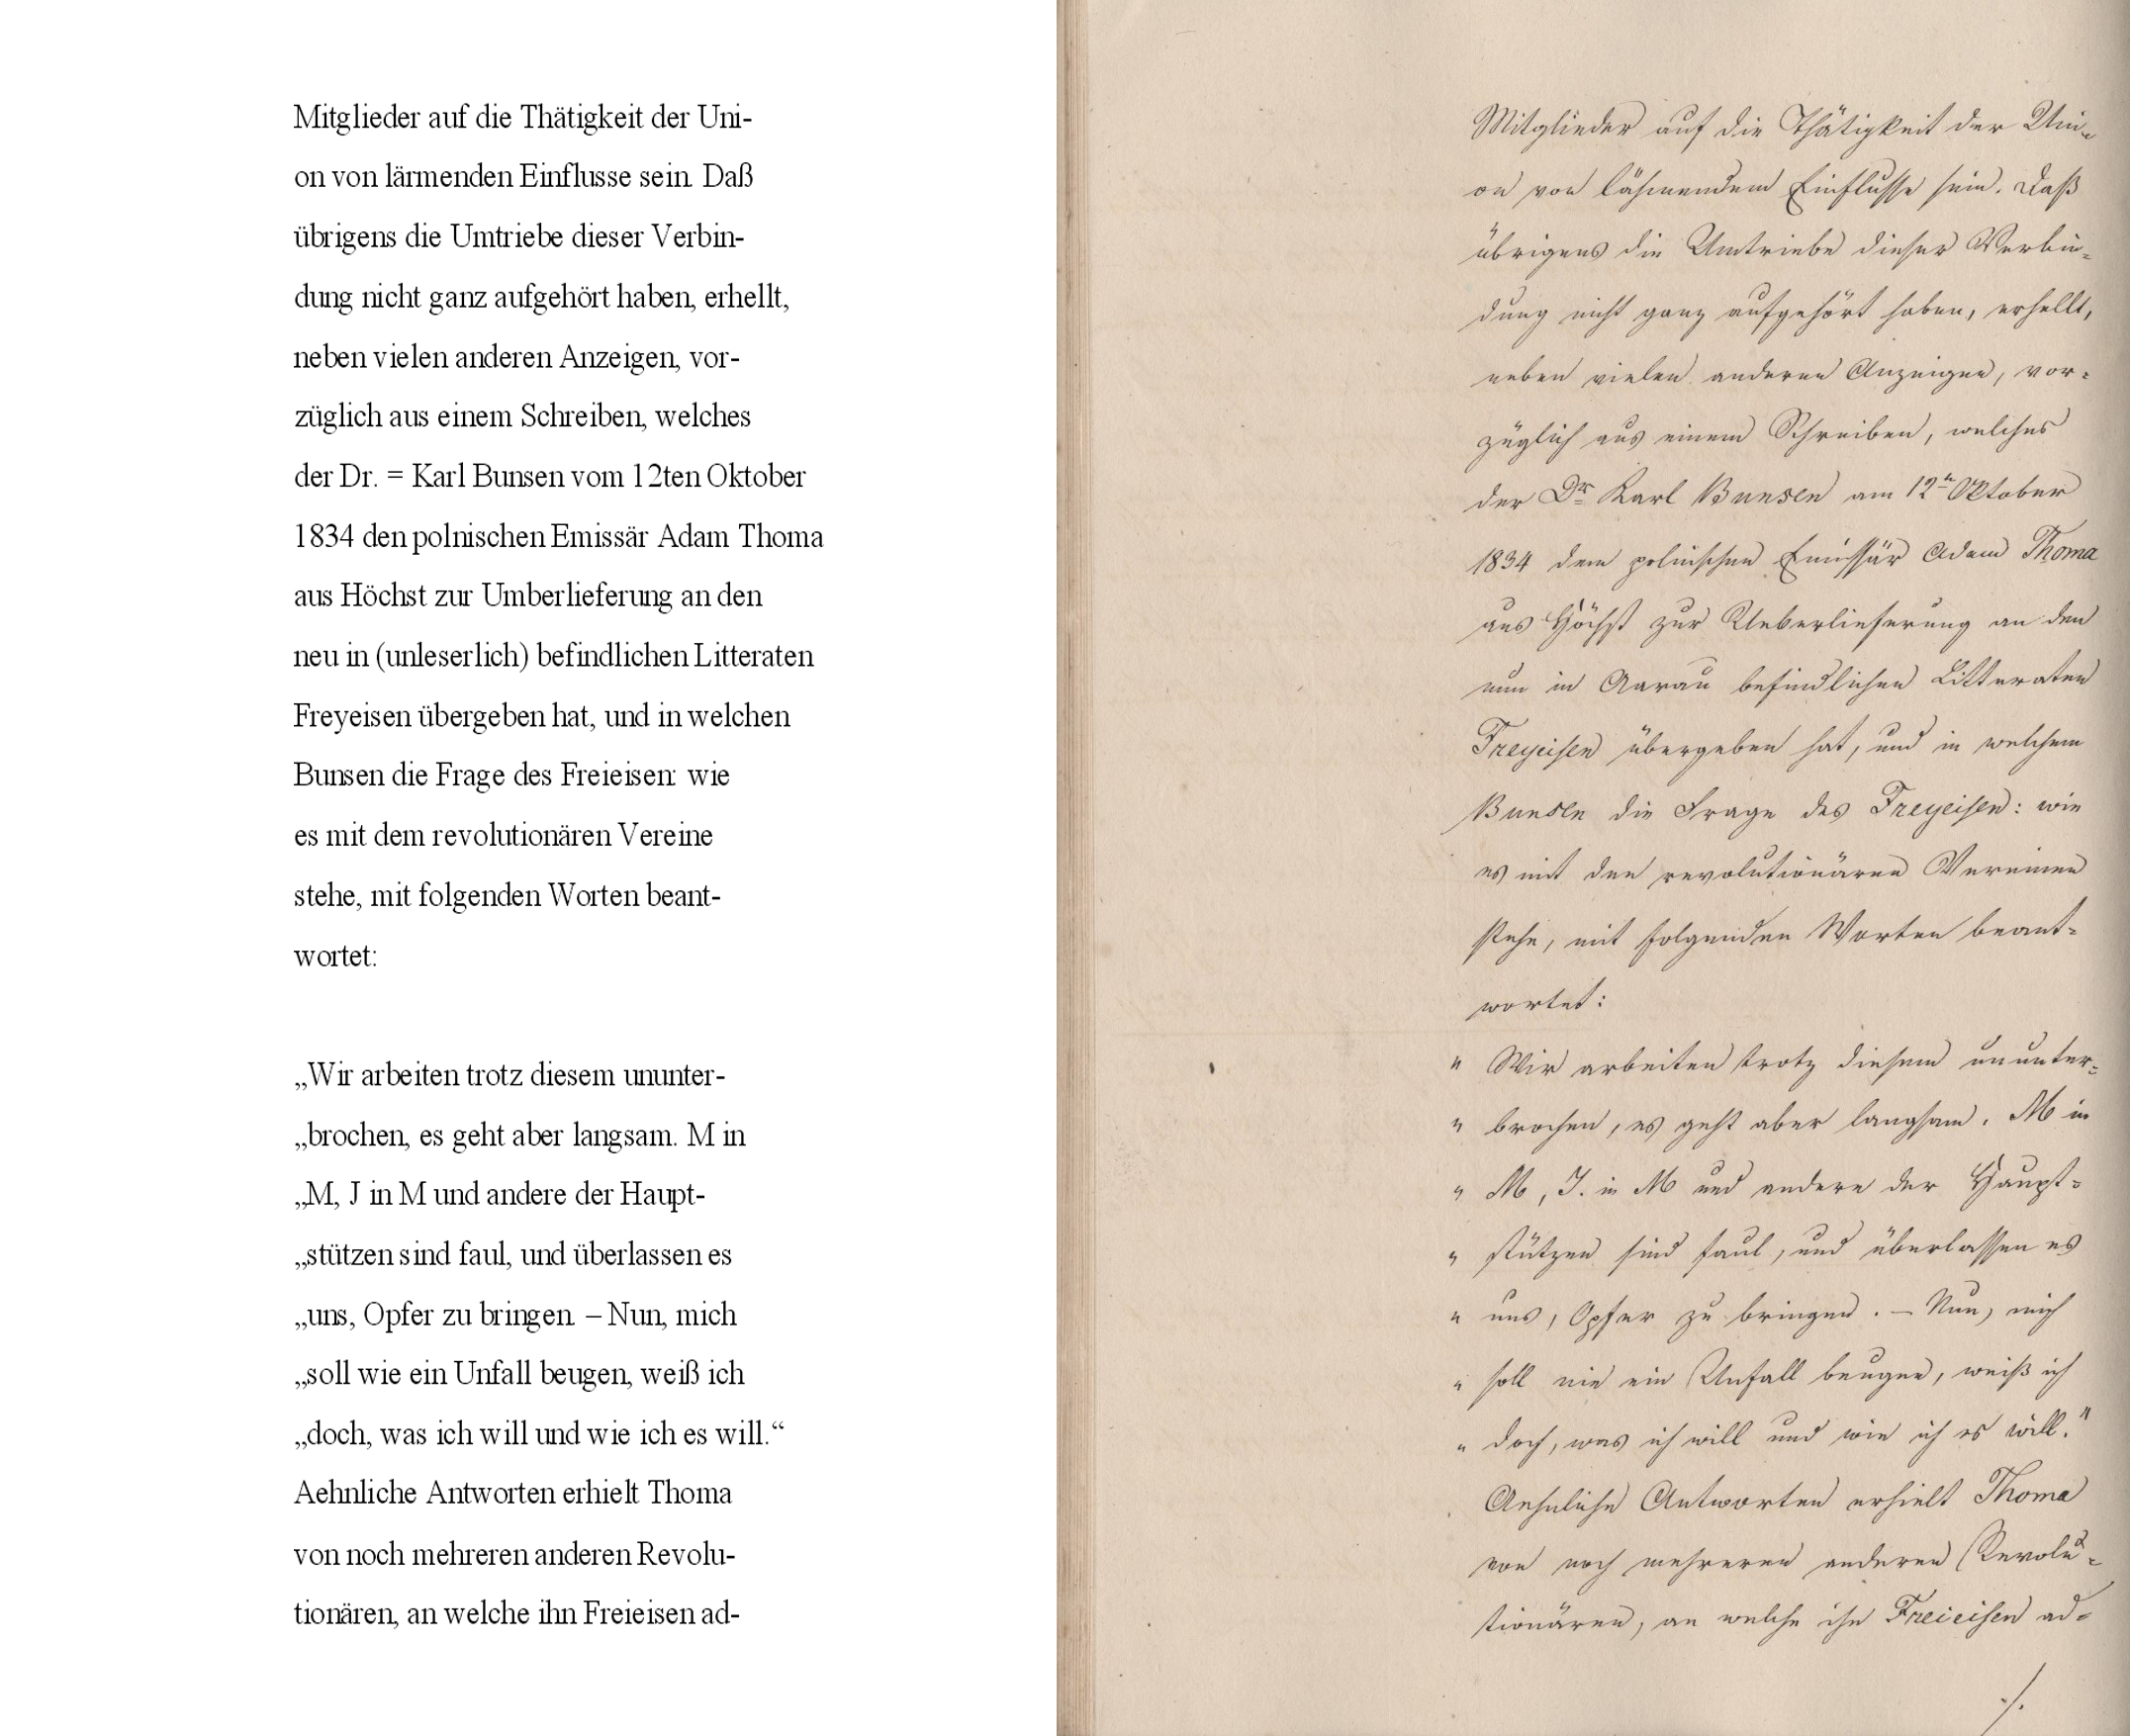 Mitglieder auf die Thätigkeit der Uni-
on von lärmenden Einflusse sein. Daß
übrigens die Umtriebe dieser Verbin-
dung nicht ganz aufgehört haben, erhellt,
neben vielen anderen Anzeigen, vor-
züglich aus einem Schreiben, welches
der Dr. = Karl Bunsen vom 12ten Oktober
1834 den polnischen Emissär Adam Thoma
aus Höchst zur Umberlieferung an den
neu in (unleserlich) befindlichen Litteraten
Freyeisen übergeben hat, und in welchen
Bunsen die Frage des Freieisen: wie
es mit dem revolutionären Vereine
stehe, mit folgenden Worten beant-
wortet:
„Wir arbeiten trotz diesem ununter-
„brochen, es geht aber langsam. M in
„M, J in M und andere der Haupt-
„stützen sind faul, und überlassen es
„uns, Opfer zu bringen. – Nun, mich
„soll wie ein Unfall beugen, weiß ich
„doch, was ich will und wie ich es will.“
Aehnliche Antworten erhielt Thoma
von noch mehreren anderen Revolu-
tionären, an welche ihn Freieisen ad-
Mitglieder auf die Thätigkeit der Uni-
on von lähmendem Einflusse sein. Daß
übrigens die Umtriebe dieser Verbin-
dung nicht ganz aufgehört haben, erhellt,
neben vielen anderen Anzeigen, vor-
züglich aus einem Schreiben, welches
der Dr Karl Bunsen am 12t Oktober
1834 dem polnischen Emissär Adam Thoma
aus Höchst zur Ueberlieferung an den
nun in Aarau befindlichen Litteraten
Freyeisen übergeben hat, und in welchem
Bunsen die Frage des Freyeisen: wie
es mit den revolutionären Vereinen
stehe, mit folgenden Worten beant-
wortet:
" Wir arbeiten trotz diesem ununter-
" brochen, es geht aber langsam. M in
" M, J. in M und andere der Haupt-
" stützen sind faul, und überlassen es
" uns, Opfer zu bringen. – Nun, mich
" soll nie ein Unfall beugen, weiß ich
" doch, was ich will und wie ich es will."
Aehnliche Antworten erhielt Thoma
von noch mehreren anderen Revolu-
tionären, an welche ihn Freieisen ad-
./.